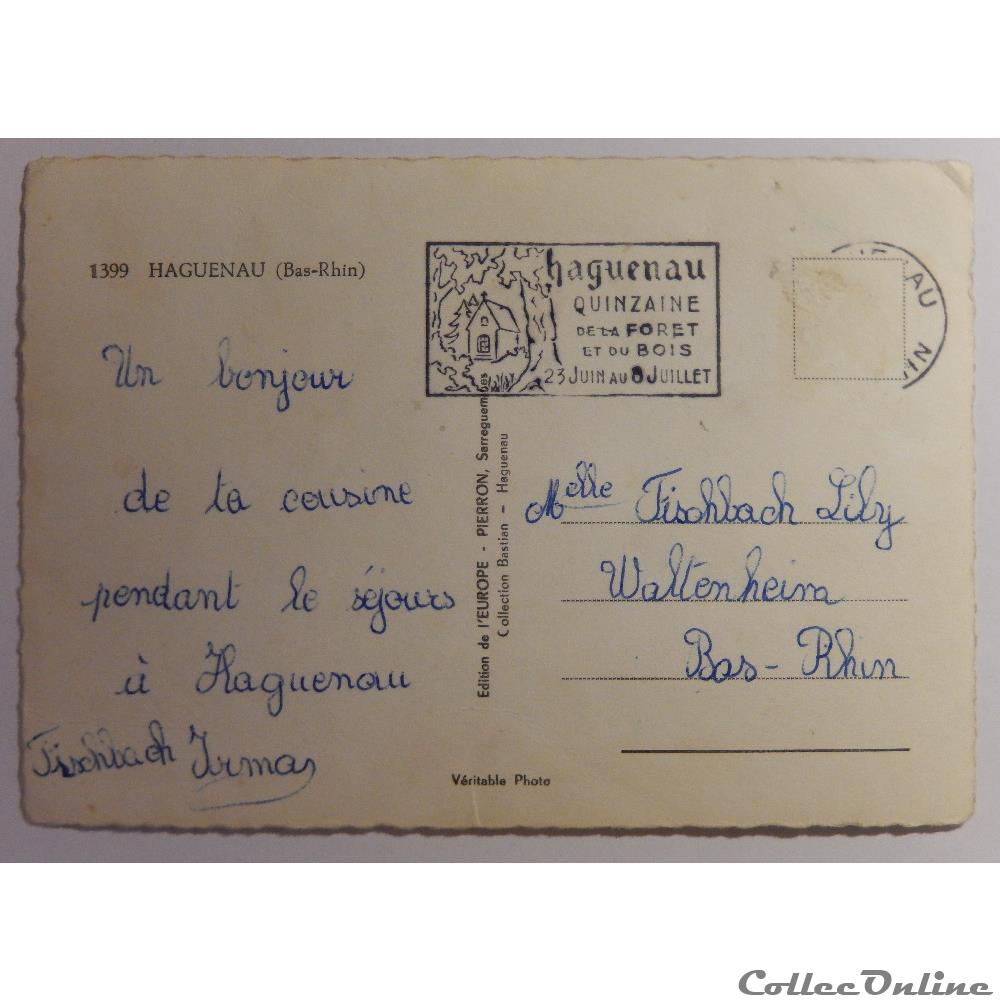 1399 HAGUENAU (Bas-Rhin)
haguenau
QUINZAINE
DE LA FORET
ET DU BOIS
23 JUIN AU 8 JUILLET
AU
Un bonjour
de ta cousine
pendant le séjours
à Haguenau
Fischbach Irma
Edition de l'EUROPE - PIERRON, Sarreguemines
Collection Bastian - Haguenau
Melle Fischbach Lily
Waltenheim
Bas-Rhin
Véritable Photo
CollecOnline